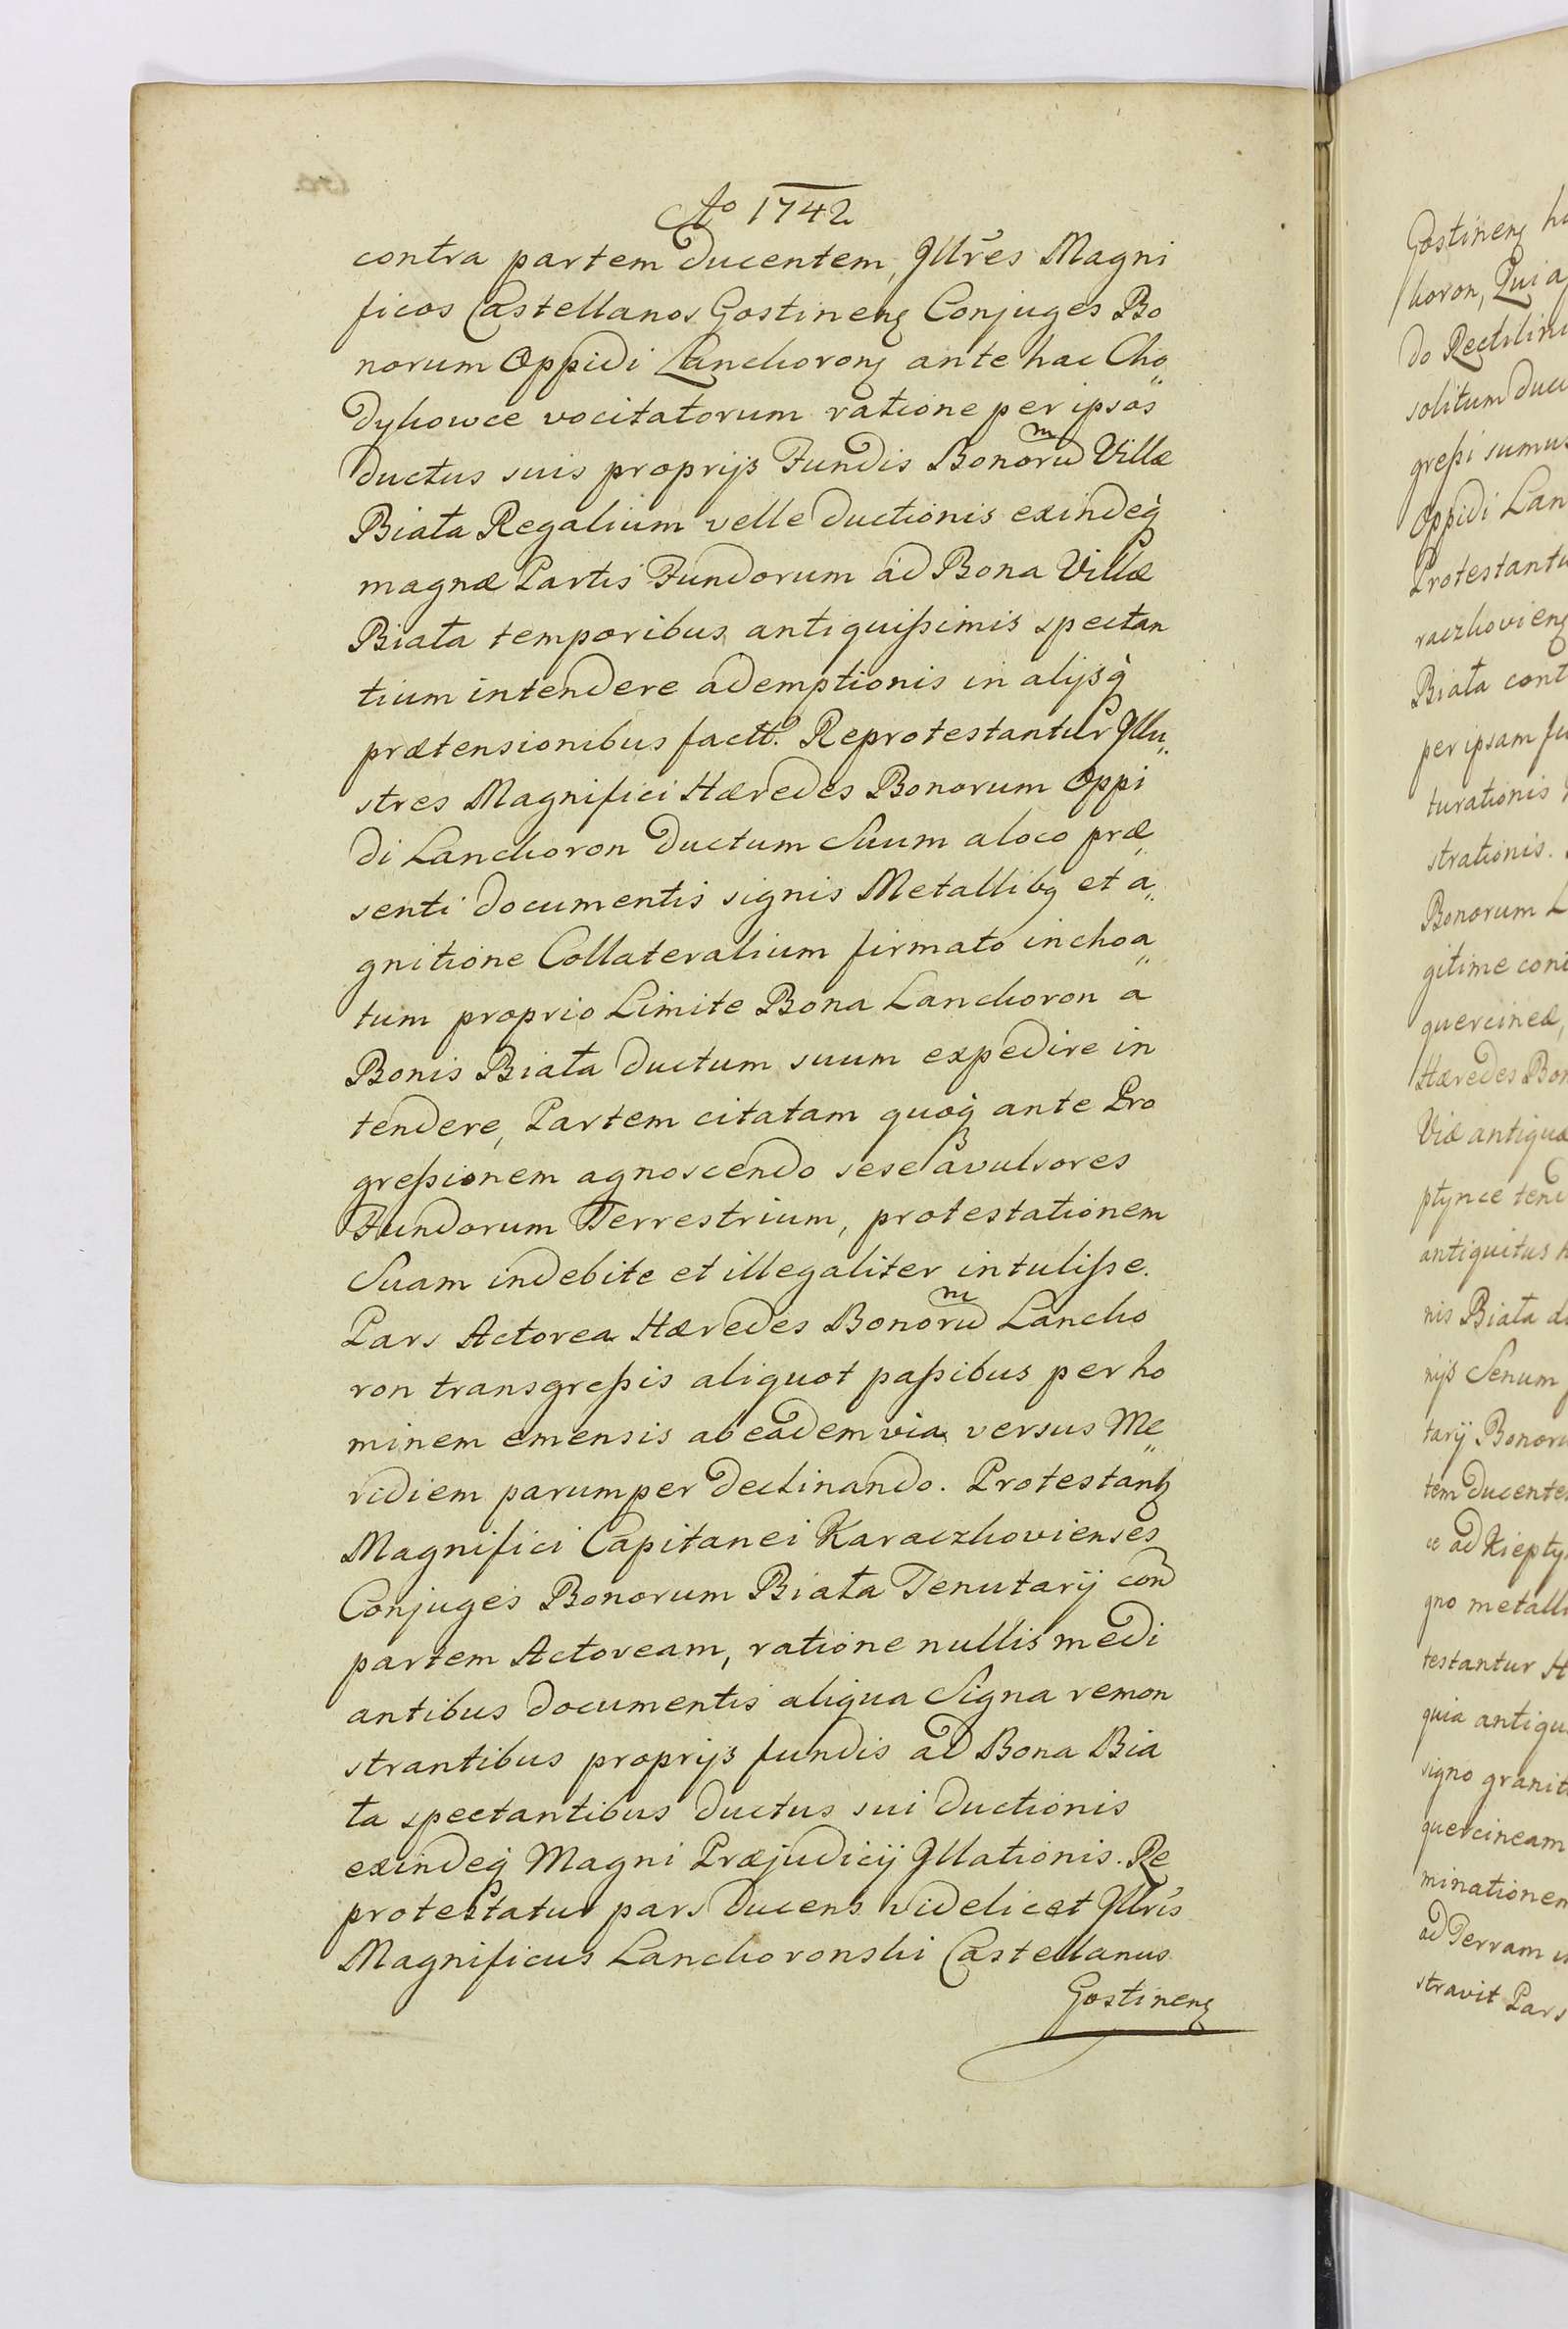 Ao 1742
contra partem ducentem, Jllr̃es Magni
ficos Castellanos Gostinenẽ Conjuges Bo
norum Oppidi Lanckoronẽ ante hac Cho„
dykowce vocitatorum ratione per ipsos
ductus suis proprijs Fundis Bonorum Villæ
Biała Regalium velle ductionis exindeq̀
magnæ Partis Fundorum ad Bona Villæ
Biała temporibus antiquißimis spectan
tium intendere ademptionis in alijsq̀
prætensionibus factt. Reprotestantur Jllu„
stres Magnifici Hæredes Bonorum Oppi
di Lanckoron ductum Suum a loco præ„
senti documentis signis Metallibq et a„
gnitione Collateralium firmato inchoa„
tum proprio Limite Bona Lanckoron a
Bonis Biała ductum suum expedire in
tendere, Partem citatam quoq̀ ante Pro
greßionem agnoscendo sese avulsores
Fundorum Terrestrium, protestationem
Suam indebite et illegaliter intuliße.
Pars Actorea Hæredes Bonorum Lancko
ron transgreßis aliquot paßibus per ho
minem emensis ab eadem via versus Me„
ridiem parumper declinando. Protestantq
Magnifici Capitanei Karaczkovienses
Conjuges Bonorum Biała Tenutarij con
partem Actoream, ratione nullis medi
antibus documentis aliqua Signa remon
strantibus proprijs fundis ad Bona Bia
ła spectantibus ductus sui ductionis
exindeq̀ Magni Præjudicij Jllationis. Re
protestatur pars ducens videlicet Jllr̃is
Magnificus Lanckoronski Castellanus
Gostinenẽ
Gostinenẽ
koron, Quia
do Rectiline
solitum duc
greßi sumus
Oppidi Lan
Protestantu
raczkovienẽ
Biała cont
per ipsam fu
turationis
strationis.
Bonorum L
gitime con
quercineæ,
Hæredes Bon
Viæ antiquæ
ptynce ten
antiquitus
nis Biała d
nijs Senum
tarij Bonoru
tem ducente
ce ad Kiepty
gno metalli
testantur H
quia antiqu
signo granit
quercineam
minationem
ad Terram
stravit Pars